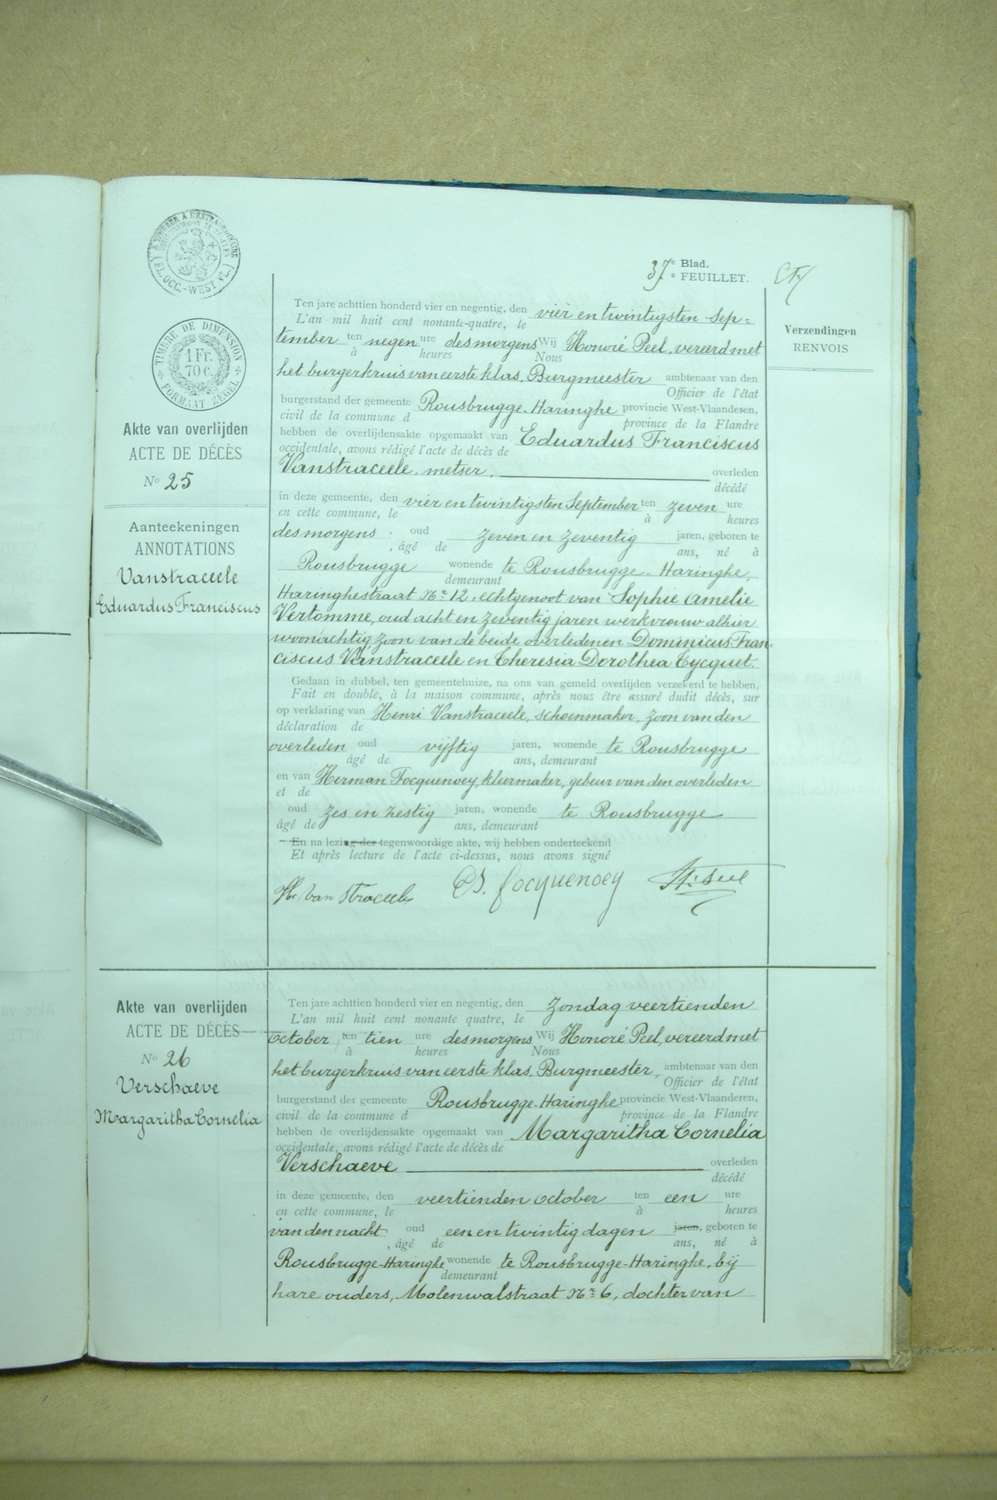 37e Blad.
e FEUILLET.
TIMBRE DE DIMENSION
1 Fr.
70 c.
FORMAAT ZEGEL
Verzendingen
RENVOIS
Akte van overlijden
ACTE DE DÉCÈS
No 25
Aanteekeningen
ANNOTATIONS
Vanstraceele
Eduardus Franciscus
Ten jare achttien honderd vier en negentig, den vier en twintigsten Sep=
L'an mil huit cent nonante-quatre, le
tember ten negen ure des morgens Wij Honoré Peel, vereerd met
à heures Nous
het burgerkruis van eerste klas, Burgmeester ambtenaar van den
Officier de l'état
burgerstand der gemeente Rousbrugge-Haringhe provincie West-Vlaanderen,
civil de la commune d province de la Flandre
hebben de overlijdensakte opgemaakt van Eduardus Franciscus
occidentale, avons rédigé l'acte de décès de
Vanstraceele, metser, overleden
décédé
in deze gemeente, den vier en twintigsten September ten zeven ure
en cette commune, le à heures
des morgens, oud zeven en zeventig jaren, geboren te
, âgé de ans, né à
Rousbrugge wonende te Rousbrugge-Haringhe,
demeurant
Haringhestraat No 12, echtgenoot van Sophie Amelie
Vertomme, oud acht en zeventig jaren werkvrouw alhier
woonachtig zoon van de beide overledenen Dominicus Fran-
ciscus Vanstraceele en Theresia Dorothea Cycquet.
Gedaan in dubbel, ten gemeentehuize, na ons van gemeld overlijden verzekerd te hebben,
Fait en double, à la maison commune, après nous être assuré dudit décès, sur
op verklaring van Henri Vanstraceele, schoenmaker, zoon van den
déclaration de
overleden oud vijftig jaren, wonende te Rousbrugge
âgé de ans, demeurant
en van Herman Focquenoey, kleermaker, gebuur van den overleden
et de
oud zes en zestig jaren, wonende te Rousbrugge
âgé de ans, demeurant
En na lezing der tegenwoordige akte, wij hebben onderteekend
Et après lecture de l'acte ci-dessus, nous avons signé
Van Straceele focquenoey
Akte van overlijden
ACTE DE DÉCÈS
No 26
Verschaeve
Margaritha Cornelia
Ten jare achttien honderd vier en negentig, den zondag veertienden
L'an mil huit cent nonante quatre, le
october ten tien ure des morgens Wij Honoré Peel, vereerd met
à heures Nous
het burgerkruis van eerste klas, Burgmeester, ambtenaar van den
Officier de l'état
burgerstand der gemeente Rousbrugge-Haringhe provincie West-Vlaanderen,
civil de la commune d province de la Flandre
hebben de overlijdensakte opgemaakt van Margaritha Cornelia
occidentale, avons rédigé l'acte de décès de
Verschaeve overleden
décédé
in deze gemeente, den veertienden october ten een ure
en cette commune, le à heures
van den nacht, oud een en twintig dagen jaren, geboren te
, âgé de ans, né à
Rousbrugge-Haringhe wonende te Rousbrugge-Haringhe, bij
demeurant
hare ouders, Molenwalstraat No 6, dochter van